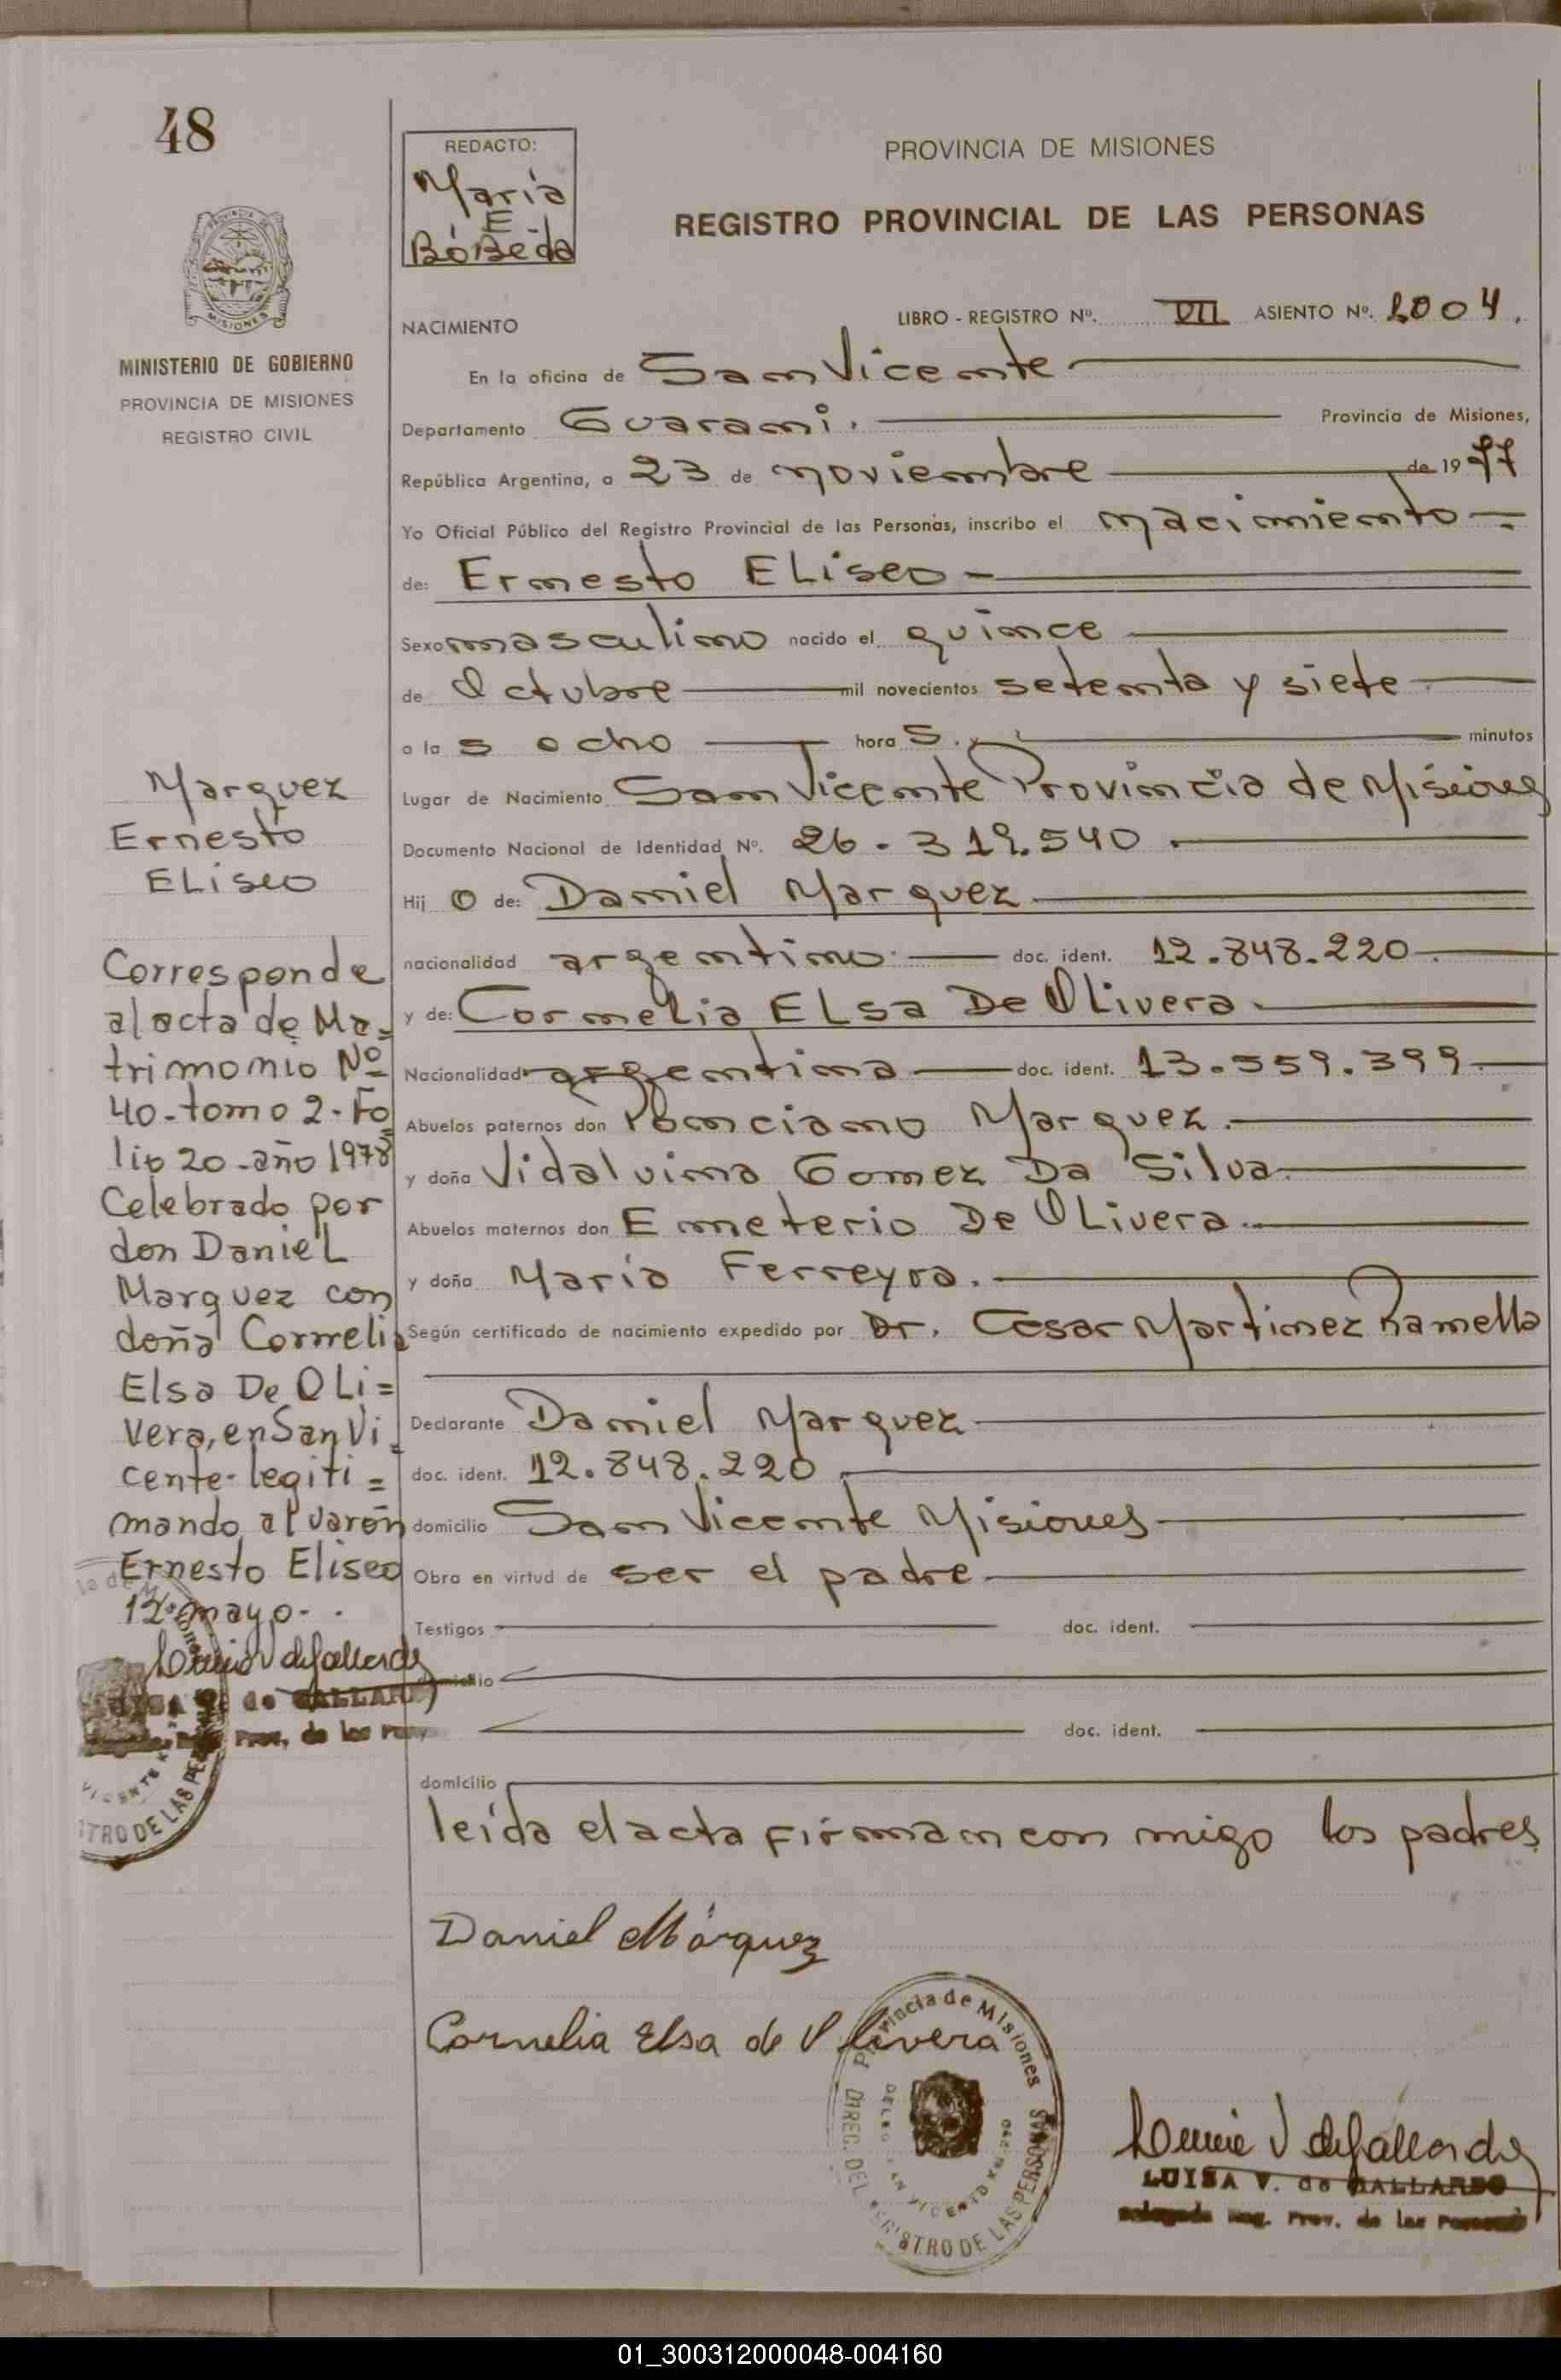 48
REDACTO:
María
E.
BóBeda
PROVINCIA DE MISIONES
REGISTRO PROVINCIAL DE LAS PERSONAS
MISIONES
MINISTERIO DE GOBIERNO
PROVINCIA DE MISIONES
REGISTRO CIVIL
NACIMIENTO
LIBRO - REGISTRO Nº. VII ASIENTO Nº. 2004.
En la oficina de San Vicente
Departamento Guarani. Provincia de Misiones,
República Argentina, a 23 de noviembre de 1977
Yo Oficial Público del Registro Provincial de las Personas, inscribo el nacimiento
de: Ernesto ELiseo
Sexo masculino nacido el quince
de Octubre mil novecientos setenta y siete
a la s ocho hora s. y minutos
Lugar de Nacimiento San Vicente Provincia de Misiones
Documento Nacional de Identidad Nº. 26.319.540
Hij o de: Daniel Marquez
nacionalidad argentino doc. ident. 12.848.220
y de: Cornelia ELsa De OLivera
Nacionalidad argentina doc. ident. 13.559.399
Abuelos paternos don Ponciano Marquez.
y doña Vidalvina Gomez Da Silva.
Abuelos maternos don Emeterio De OLivera.
y doña María Ferreyra.
Según certificado de nacimiento expedido por Dr. Cesar Martinez Ramella
Declarante Daniel Marquez
doc. ident. 12.848.220
domicilio San Vicente Misiones
Obra en virtud de ser el padre
Testigos doc. ident.
domicilio
doc. ident.
domicilio
leída el acta firman con migo los padres
Daniel Márquez
Cornelia Elsa de Olivera
Provincia de Misiones
DIREC. DEL REGISTRO DE LAS PERSONAS
LUISA V. de GALLARDO
Delegada Reg. Prov. de las Personas
Marquez
Ernesto
ELiseo
Corresponde
al acta de Ma=
trimonio Nº
40-tomo 2-Fo
lio 20-año 1978
Celebrado por
don DanieL
Marquez con
doña Cornelia
Elsa De OLi=
vera, en San Vi=
cente-legiti=
mando al varón
Ernesto Eliseo
12-mayo-.
LUISA V. de GALLARDO
Reg. Prov. de las Pers
VICENTE
STRO DE LAS PE
01_300312000048-004160